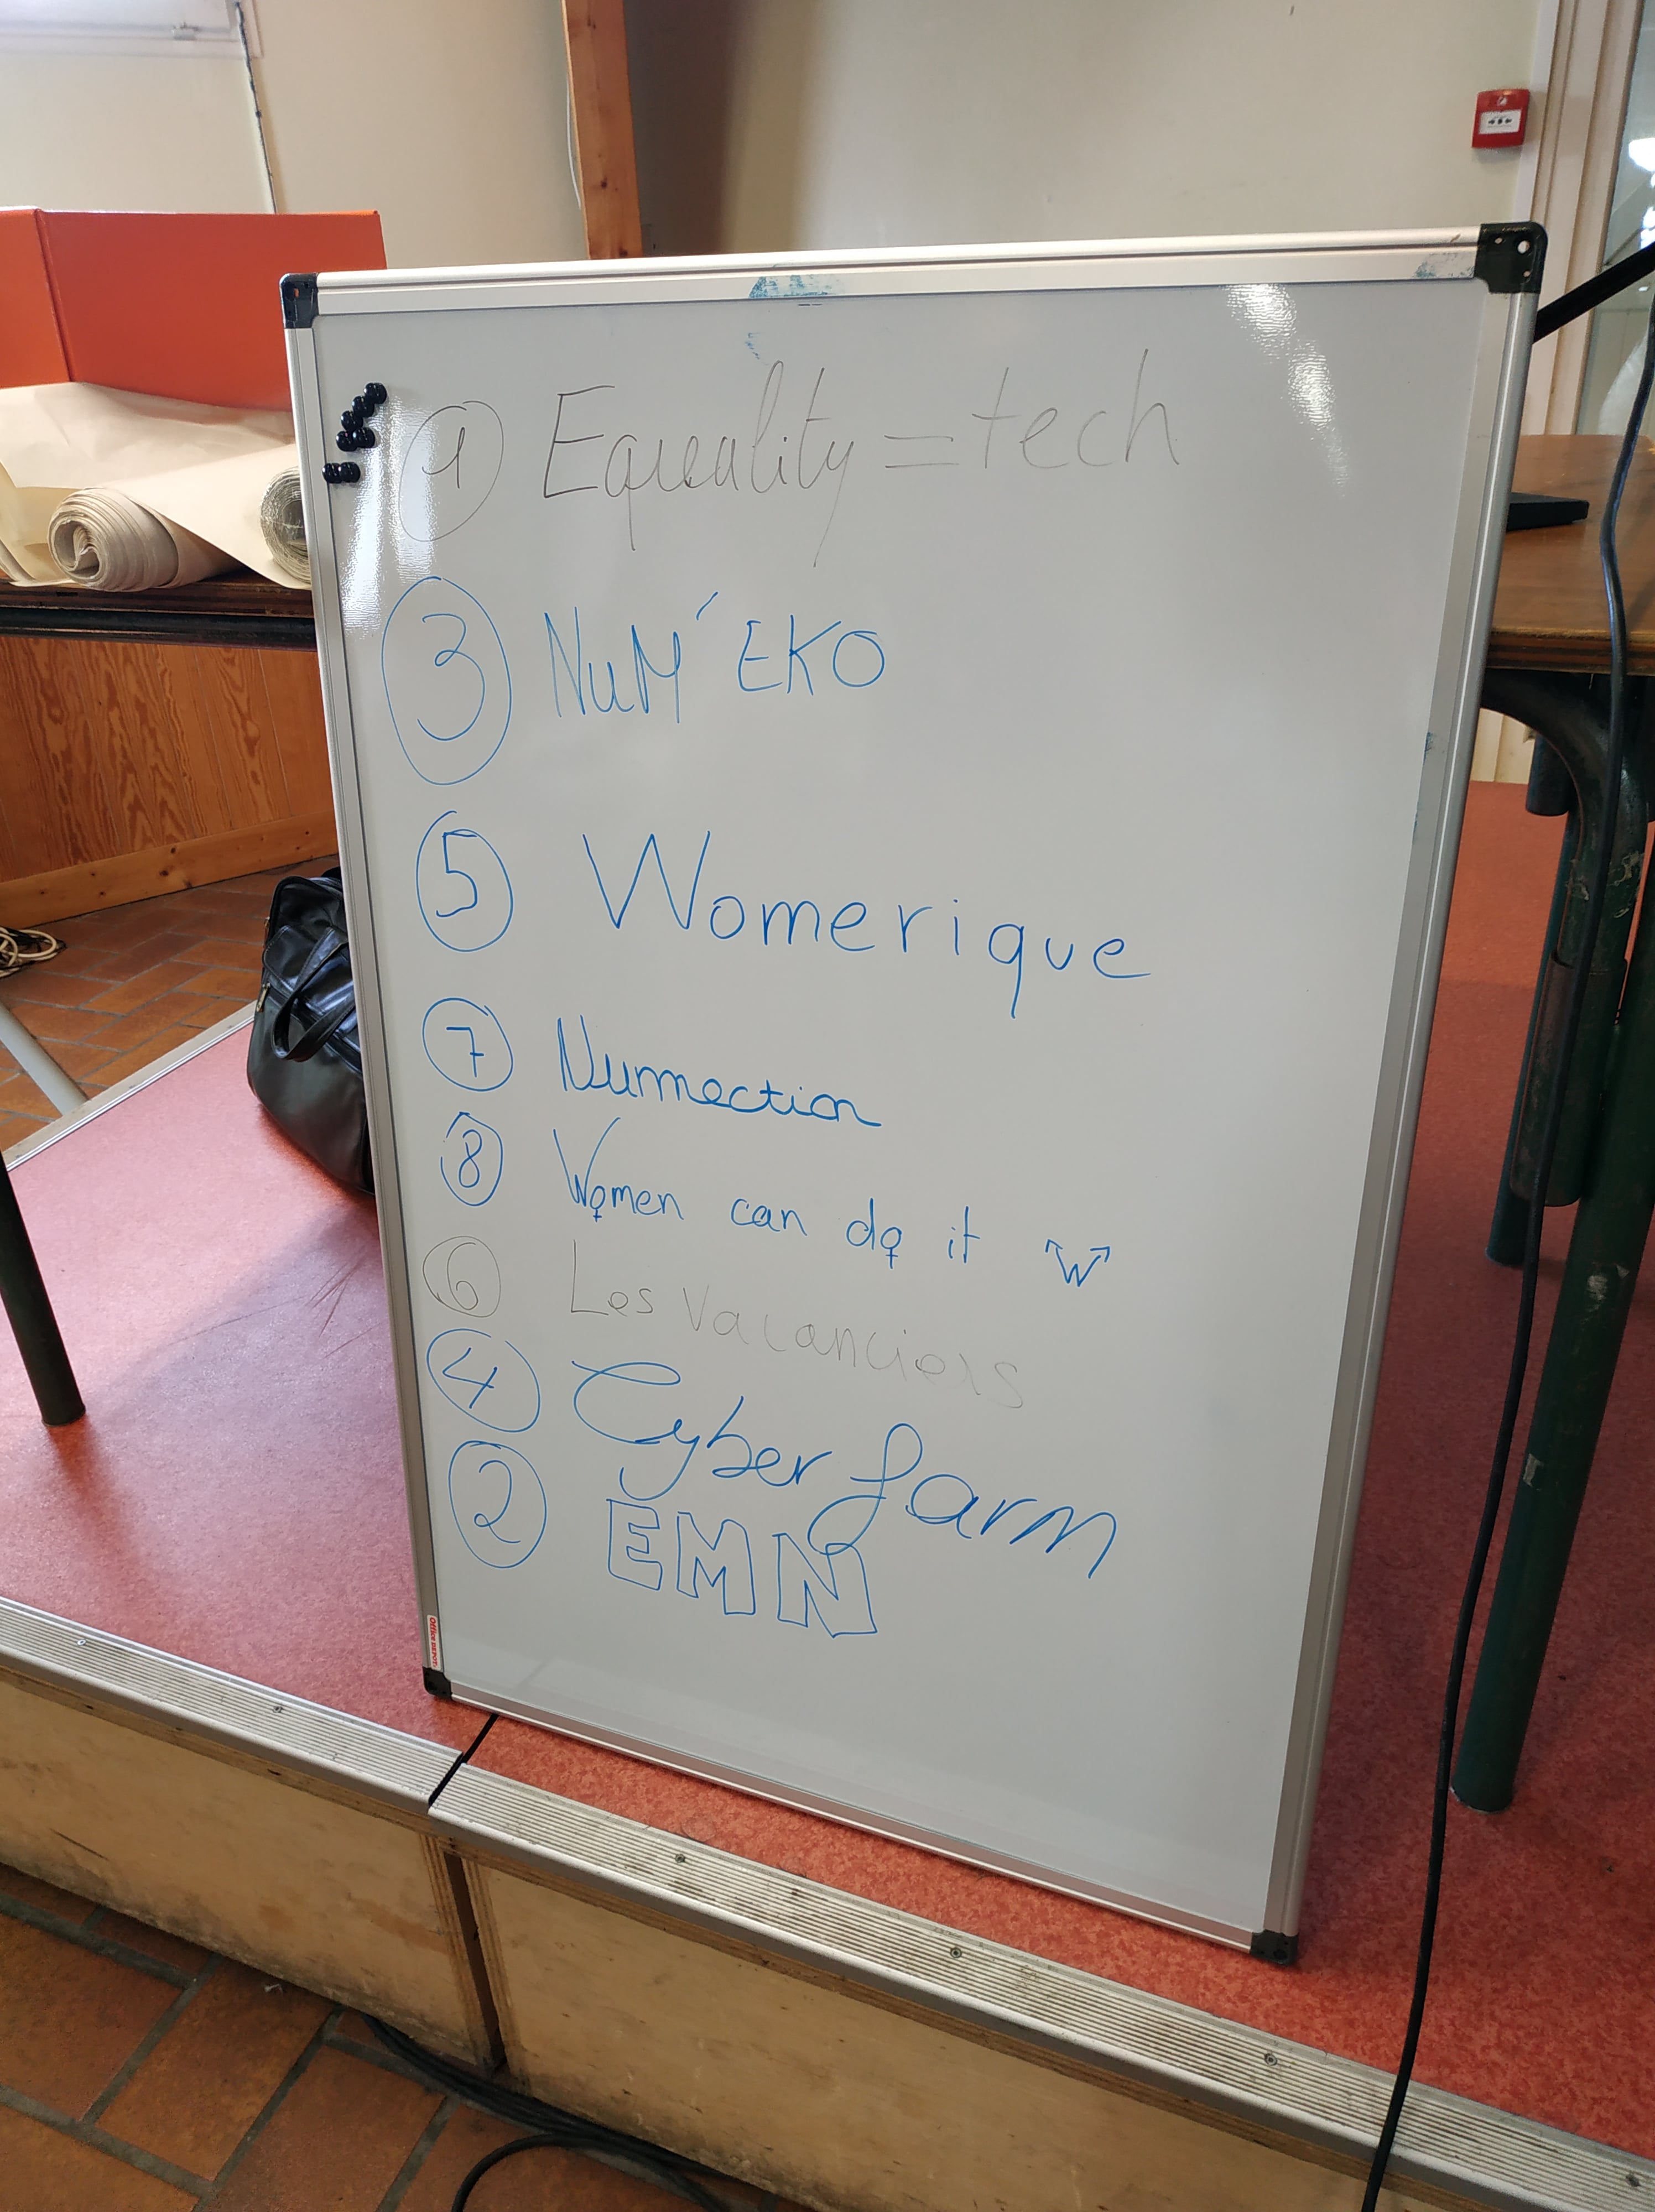 1 Equality = tech
3 NuM'EKO
5 Womerique
7 Numection
8 Women can do it W
6 Les Vacanciers
4 Cyber farm
2 EMN
Office DEPOT